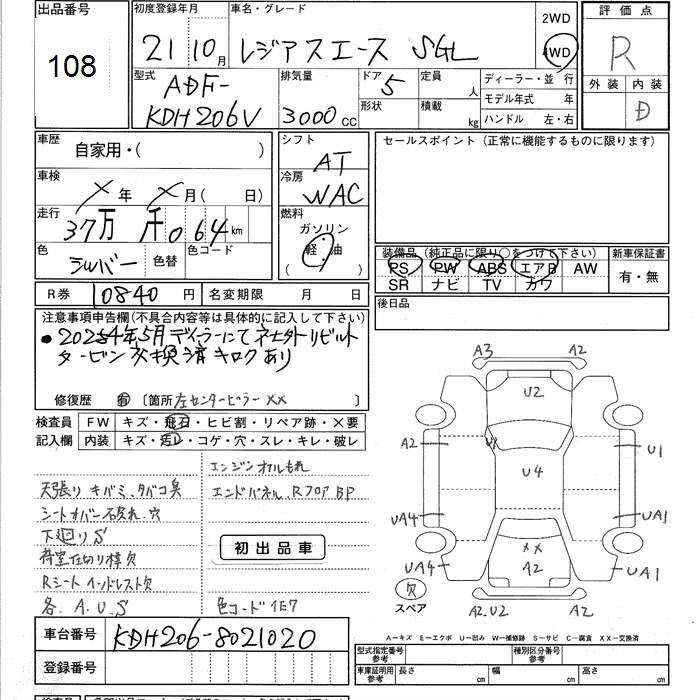 出品番号 初度登録年月 車名・グレード 評価点
108 21 10月 レジアスエース SGL 2WD 4WD R
型式 ADF- KDH206V 排気量 3000cc ドア 5 形状 定員 人 積載 kg ディーラー・並行 モデル年式 年 ハンドル 左・右 外装 内装 D
車歴 自家用・( ) シフト AT セールスポイント (正常に機能するものに限ります)
車検 × 年 × 月( 日) 冷房 WAC
走行 37万 千 064 km 燃料 ガソリン 軽・油 ( )
色 シルバー 色替 色コード
装備品 (純正品に限り○をつけて下さい) 新車保証書
PS PW ABS エアB AW 有・無
SR ナビ TV カワ
R券 10840 円 名変期限 月 日 後日品
注意事項申告欄(不具合内容等は具体的に記入して下さい)
修復歴 有 〔箇所 左センターピラー ××〕
検査員 FW キズ・飛石・ヒビ割・リペア跡・×要
記入欄 内装 キズ・汚レ・コゲ・穴・スレ・キレ・破レ
エンジンオイルもれ
天張り キバミ、タバコ臭 エンドパネル、Rフロア BP
シートカバー 破れ、穴
下廻り S 初出品車
荷室仕切り棒欠
Rシート ヘッドレスト欠
各、A、U、S 色コード 1E7
A3 A2
U2
A2 U1 U1
U4
UA4 UA1
××
UA4 A2 UA1
欠
スペア A2、U2 A2
A-キズ E-エクボ U-凹み W-補修跡 S-サビ C-腐食 XX-交換済
車台番号 KDH206-8021020
型式指定番号 参考 種別区分番号 参考
登録番号 車庫証明用 参考 長さ cm 幅 cm 高さ cm